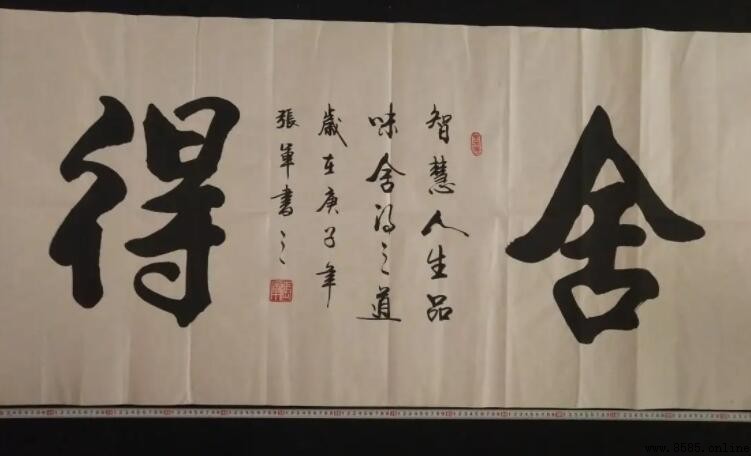 舍
智慧人生品
味舍得之道
歲在庚子年
張軍書之
得
www.8565.online